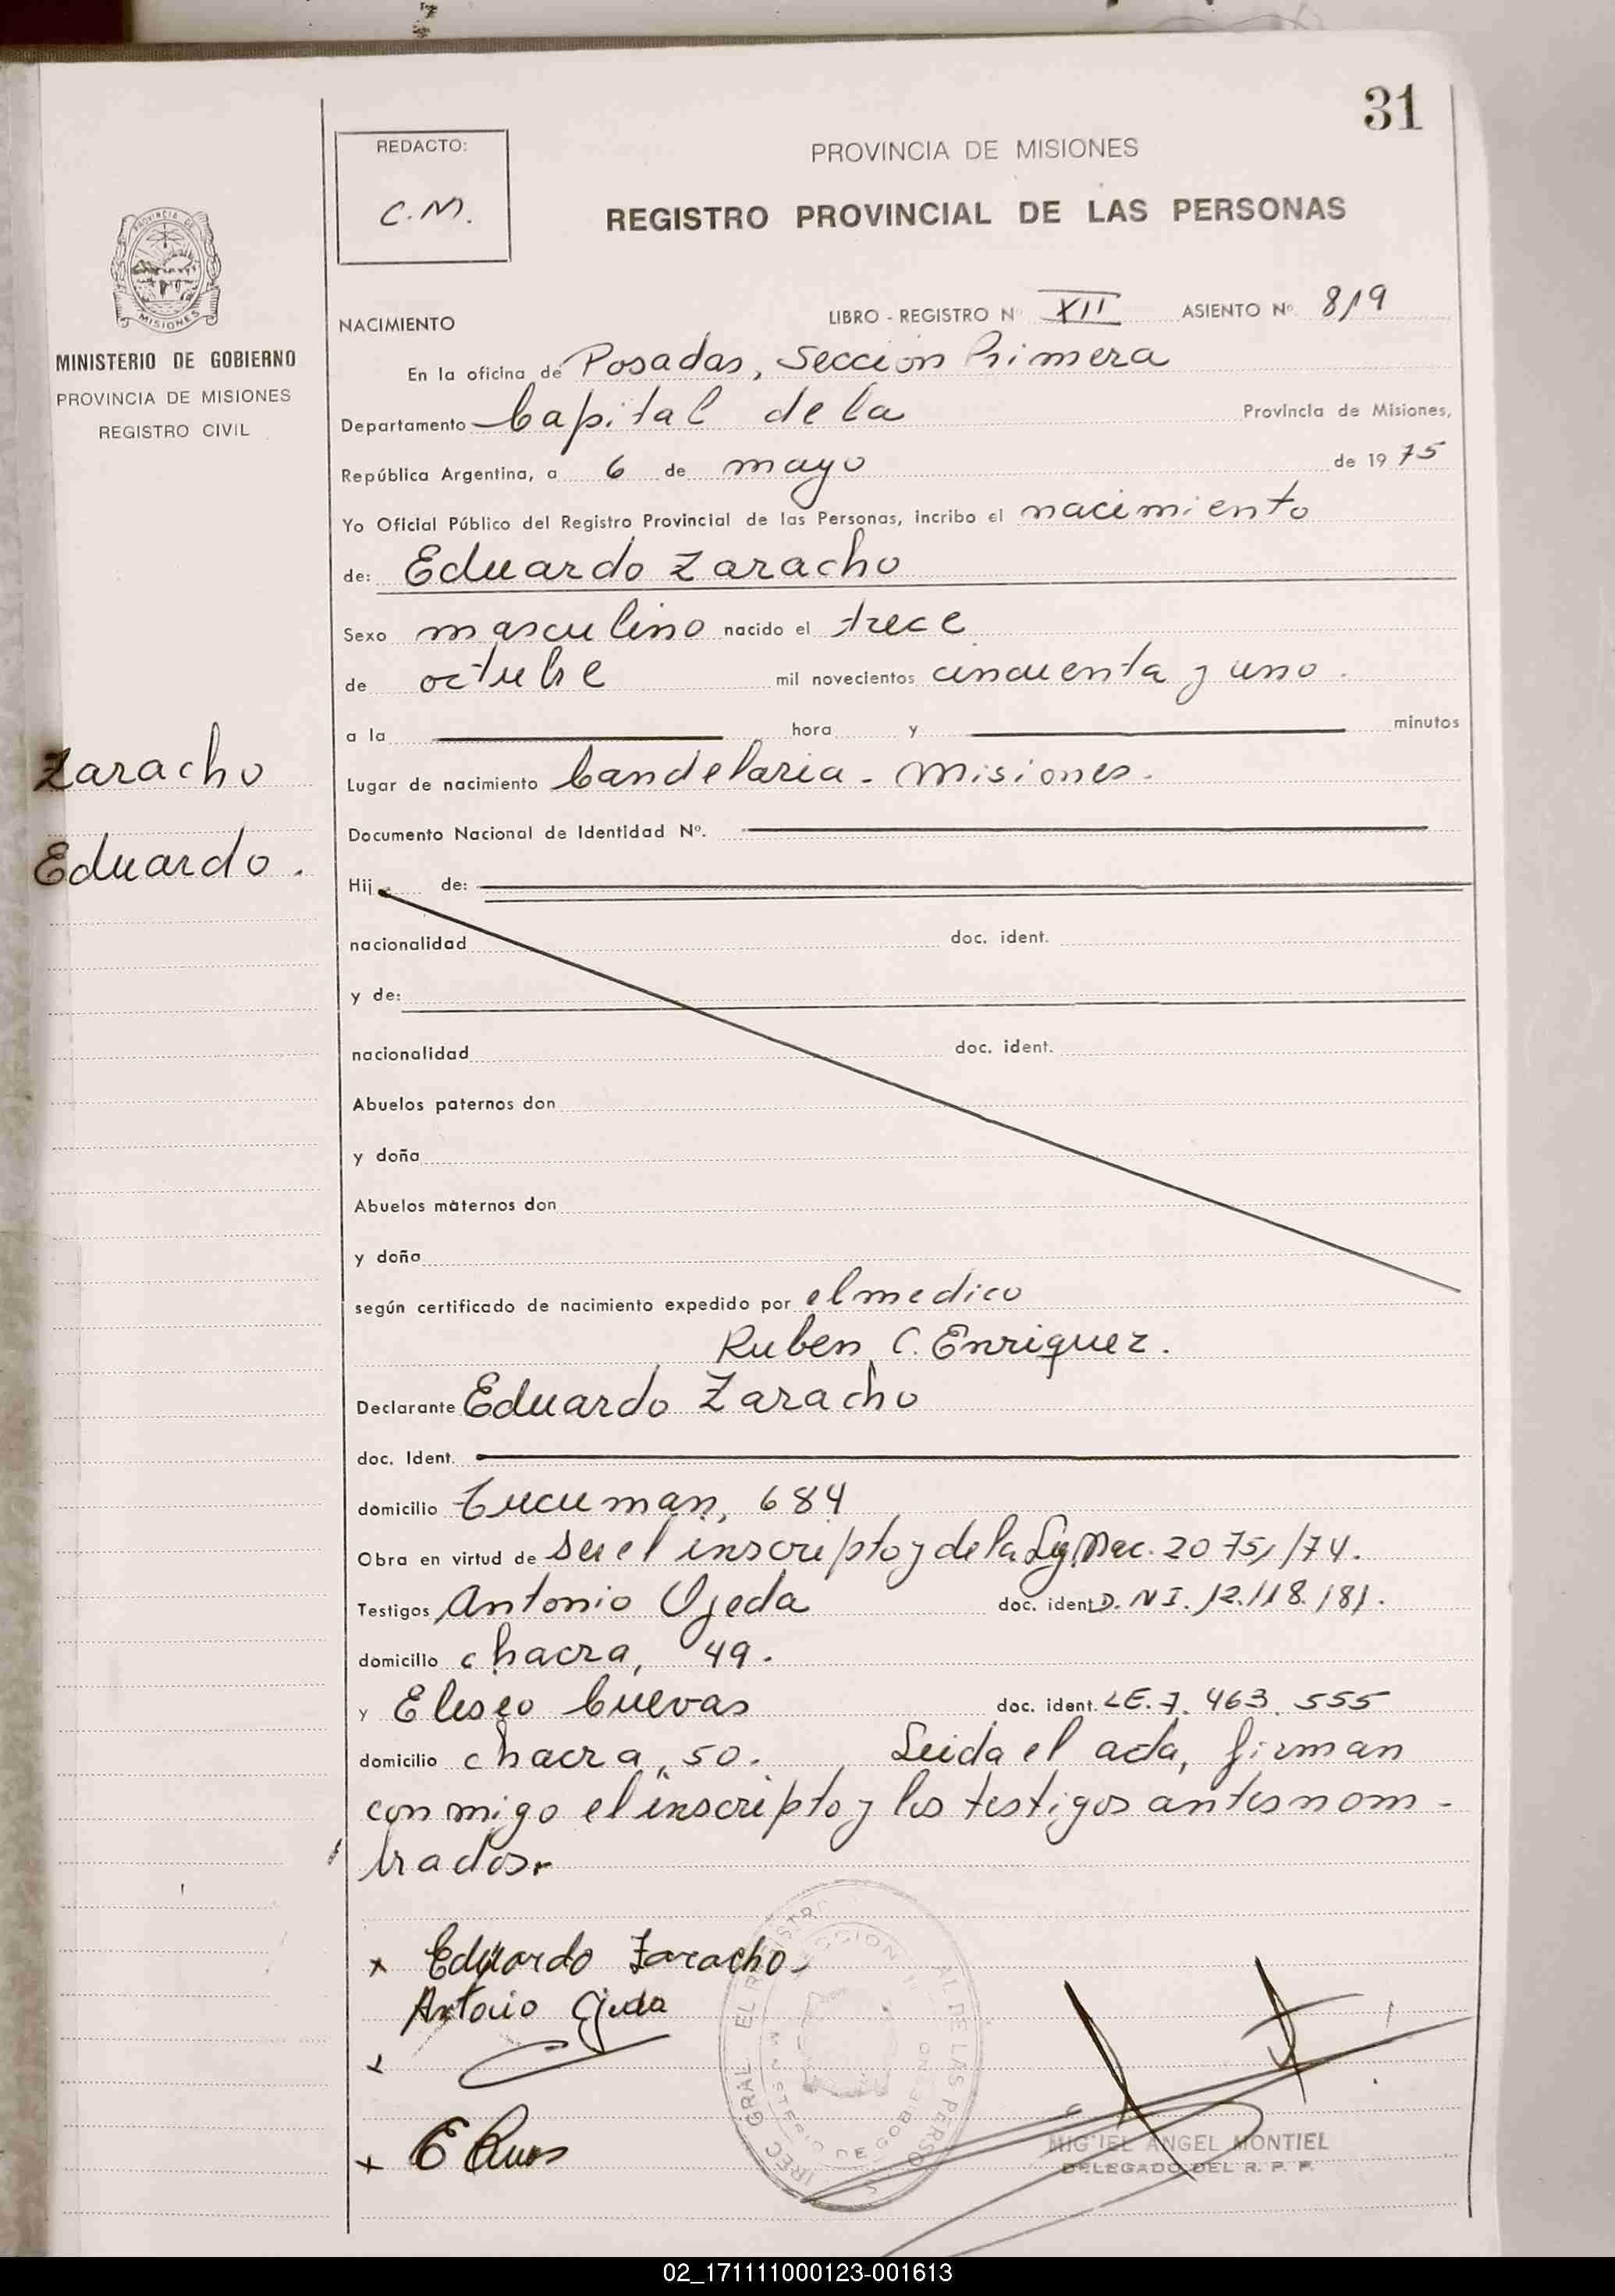 31
REDACTO:
C.M.
PROVINCIA DE MISIONES
REGISTRO PROVINCIAL DE LAS PERSONAS
MISIONES
MINISTERIO DE GOBIERNO
PROVINCIA DE MISIONES
REGISTRO CIVIL
NACIMIENTO
LIBRO - REGISTRO Nº XII ASIENTO Nº 819
En la oficina de Posadas, Seccion Primera
Departamento Capital de la Provincia de Misiones,
República Argentina, a 6 de mayo de 1975
Yo Oficial Público del Registro Provincial de las Personas, incribo el nacimiento
de: Eduardo Zaracho
Sexo masculino nacido el trece
de octubre mil novecientos cincuenta y uno.
a la hora y minutos
Zaracho
Lugar de nacimiento Candelaria - Misiones.
Documento Nacional de Identidad Nº.
Eduardo.
Hij de:
nacionalidad doc. ident.
y de:
nacionalidad doc. ident.
Abuelos paternos don
y doña
Abuelos maternos don
y doña
según certificado de nacimiento expedido por el medico
Ruben C. Enriquez.
Declarante Eduardo Zaracho
doc. Ident.
domicilio Tucuman, 684
Obra en virtud de ser el inscripto y de la Ley Nac. 2075/74.
Testigos Antonio Ojeda doc. ident D.N.I. 12.118.181.
domicilio chacra, 49.
y Eliseo Cuevas doc. ident. LE. 7.463.555
domicilio chacra, 50. Leida el acta, firman
con migo el inscripto y los testigos antes nom-
brados.
Eduardo Zaracho
Antonio Ojeda
MIGUEL ANGEL MONTIEL
DELEGADO DEL R. P. P.
02_171111000123-001613